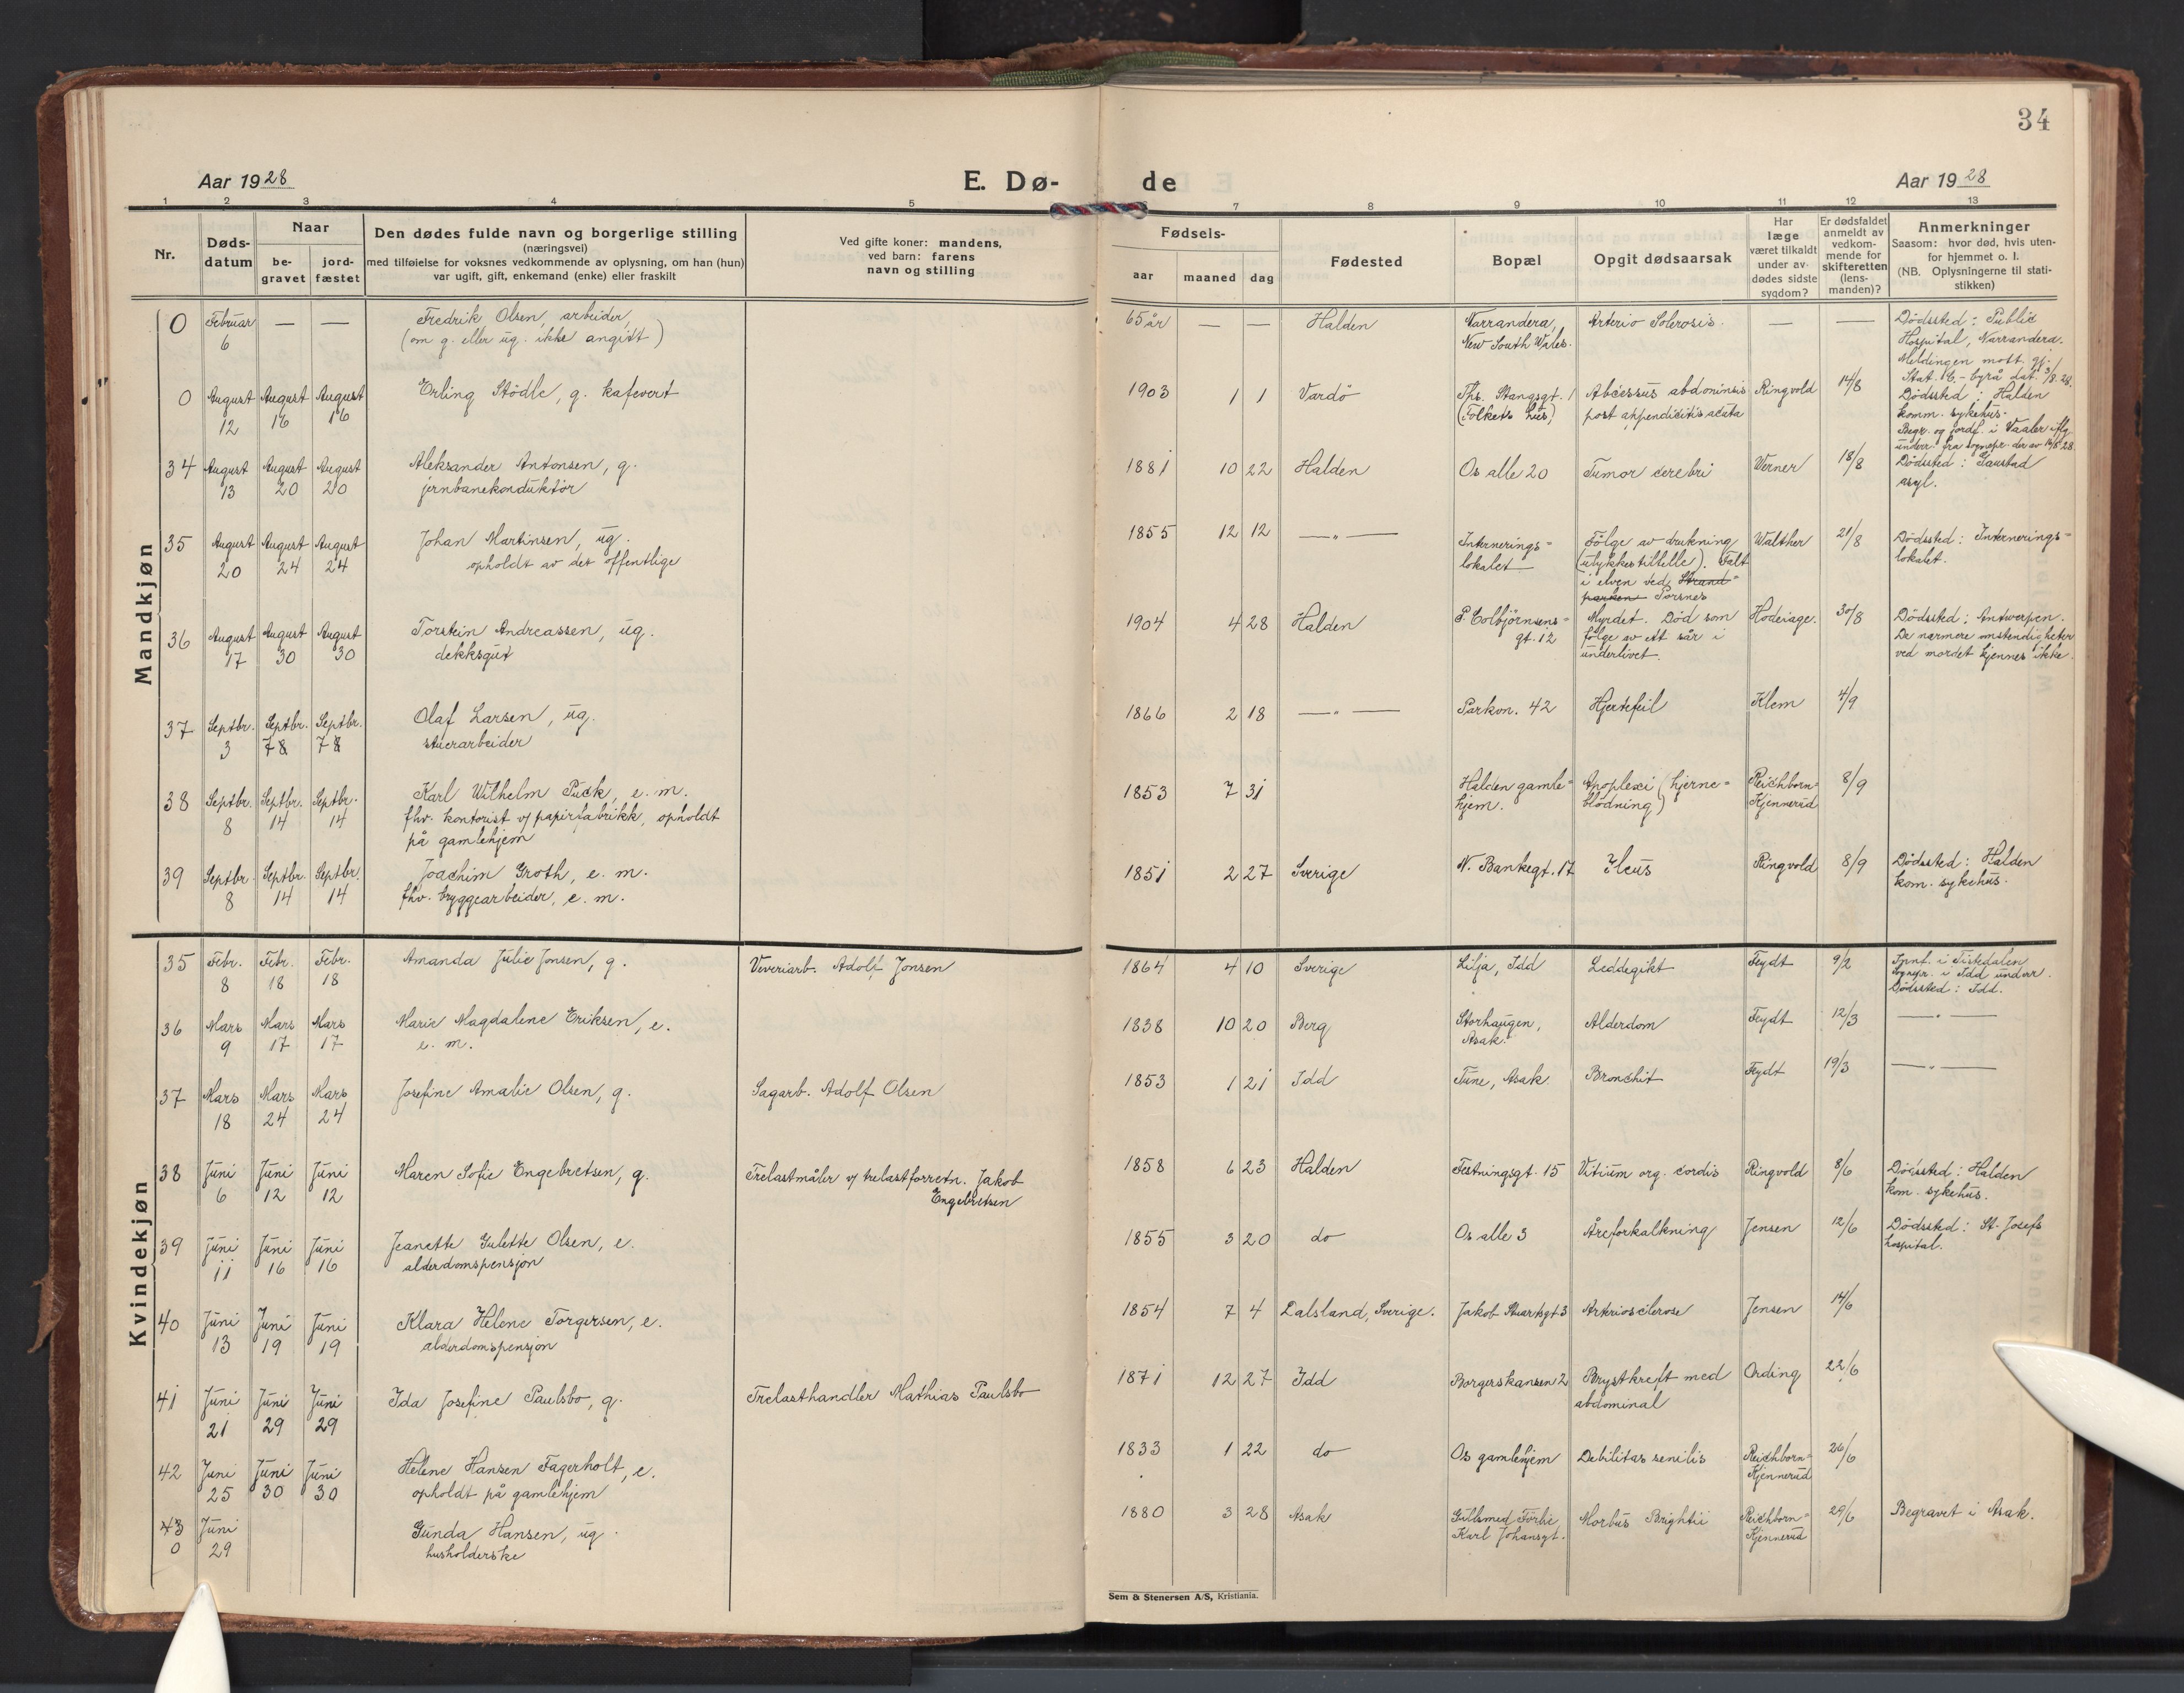 34
Aar 1928
E. Dø-
de
Aar 1928
1 2 3 4 5 6 7 8 9 10 11 12 13
Nr.
Døds-
datum
Naar
be-
gravet
jord-
fæstet
Den dødes fulde navn og borgerlige stilling
(næringsvei)
med tilføielse for voksnes vedkommende av oplysning, om han (hun)
var ugift, gift, enkemand (enke) eller fraskilt
Ved gifte koner: mandens,
ved barn: farens
navn og stilling
Fødsels-
aar
maaned
dag
Fødested
Bopæl
Opgit dødsaarsak
Har
læge
været tilkaldt
under av-
dødes sidste
sygdom?
Er dødsfaldet
anmeldt av
vedkom-
mende for
skifteretten
(lens-
manden)?
Anmerkninger
Saasom: hvor død, hvis uten-
for hjemmet o. l.
(NB. Oplysningerne til stati-
stikken)
Mandkjøn
0 Februar — — Fredrik Olsen, arbeider, 65 år — — Halden Narrandera, Arterio Solerosis. — — Dødssted: Public
6 (om g. eller ug. ikke angitt) New South Wales. Hospital, Narrandera.
Meldingen mott. gj.
Stat. 16.-byrå dat. 3/8.28.
0 August August August Erling Stødle, g. kafevert 1903 1 1 Vardö Ths. Stangsgt. 1 Abcessus abdominis Ringvold 14/8 Dödssted: Halden
12 16 16 (Folkets hus) post appendicitis acuta komm. sykehus.
Begr. og jordf. i Vaaler iflg.
underr. fra sognepr. der av 14/8 28
34 August August August Aleksander Antonsen, g. 1881 10 22 Halden Os alle 20 Tumor cerebri Werner 18/8 Dödssted: Gaustad
13 20 20 jernbanekonduktör asyl.
35 August August August Johan Martinsen, ug. 1855 12 12 —„— Internerings= Fölge av drukning Walther 21/8 Dödssted: Internerings=
20 24 24 opholdt av det offentlige lokalet (ulykkestillelle). Falt lokalet.
i elven ved Strand=
parken Porsnes
36 August August August Torstein Andreassen, ug. 1904 4 28 Halden P. Colbjørnsens= Myrdet. Död som Hodeiage. 30/8 Dödssted: Antwerpen.
17 30 30 dekksgut gt. 12 fölge av et sår i De nærmere omstendigheter
underlivet. ved mordet kjennes ikke.
37 Septbr. Septbr. Septbr. Olaf Larsen, ug. 1866 2 18 —„— Parkvn. 42 Hjertefeil Klem 4/9
3 7 8 7 8 stuerarbeider
38 Septbr. Septbr. Septbr. Karl Wilhelm Puck, e. m. 1853 7 31 Halden gamle= Apoplexi (hjerne= Reichborn= 8/9
8 14 14 fhv. kontorist v/ papirfabrikk, opholdt hjem. blödning) Kjennerud
på gamlehjem
39 Septbr. Septbr. Septbr. Joachim Groth, e. m. 1851 2 27 Sverige N. Bankegt. 17 Ileus Ringvold 8/9 Dödssted: Halden
8 14 14 fhv. bryggearbeider, e. m. kom. sykehus.
Kvindekjøn
35 Febr. Febr. Febr. Amanda Julie Jonsen, g. Veveriarb. Adolf Jonsen 1864 4 10 Sverige Lilja, Idd Leddegikt Feydt 9/2 Jpnf. i Tistedalen
8 18 18 Sognepr. i Idd underr.
Dödssted: Idd.
36 Mars Mars Mars Marie Magdalene Eriksen, e. 1838 10 20 Berg Storhaugen, Alderdom Feydt 12/3 —„—
9 17 17 e. m. Asak.
37 Mars Mars Mars Josefine Amalie Olsen, g. Sagarb. Adolf Olsen 1853 1 21 Idd Tune, Asak Bronchit Feydt 19/3 —„—
18 24 24
38 Juni Juni Juni Maren Sofie Engebretsen, g. Trelastmåler v/ trelastforretn. Jakob 1858 6 23 Halden Festningsgt. 15 Vitium org. cordis Ringvold 8/6 Dödssted: Halden
6 12 12 Engebretsen kom. sykehus.
39 Juni Juni Juni Jeanette Gulette Olsen, e. 1855 3 20 do Os alle 3 Åreforkalkning Jensen 12/6 Dödssted: St. Josefs
11 16 16 alderdomspensjon hospital.
40 Juni Juni Juni Klara Helene Torgersen, e. 1854 7 4 Dalsland, Sverige. Jakob Stuartsgt 3 Arteriosclerose Jensen 14/6
13 19 19 alderdomspensjon
41 Juni Juni Juni Ida Josefine Paulsbo, g. Trelasthandler Mathias Paulsbo 1871 12 27 Idd Borgerskansen 2 Brystkreft med Ording 22/6
21 29 29 abdominal
42 Juni Juni Juni Helene Hansen Fagerholt, e. 1833 1 22 do Os gamlehjem Debilitas senilis Reichborn= 26/6
25 30 30 opholdt på gamlehjem Kjennerud
43 Juni Gunda Hansen, ug. 1880 3 28 Asak Gullsmed Morbus Brightii Reichborn= 29/6 Begravet i Asak.
0 29 husholderske Karl Johansgt. Kjennerud
Sem & Stenersen A/S, Kristiania.